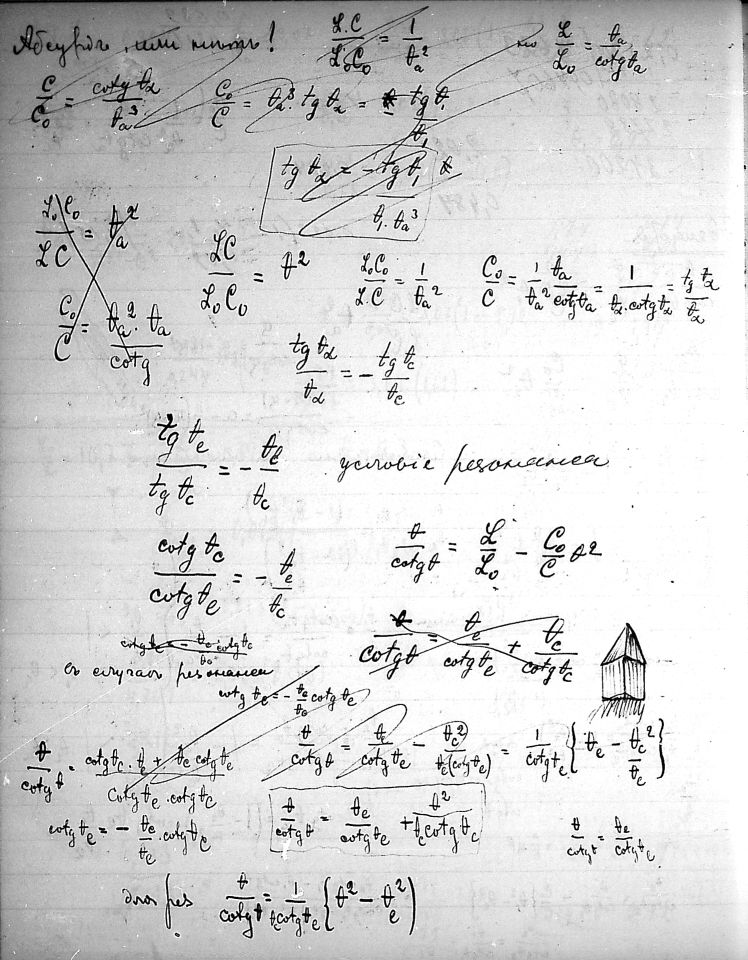 Абсурдъ, или нѣтъ! L.C/L₀C₀ = 1/ϑa² но L/L₀ = ϑa/cotgϑa
C/C₀ = cotgϑα/ϑa³ C₀/C = ϑa³. tgϑα = tgϑ₁/ϑ₁
tgϑα = - tgϑ₁/ϑ₁.ϑa³
L₀C₀/LC = ϑa²
LC/L₀C₀ = ϑ² L₀C₀/L.C = 1/ϑa² C₀/C = 1/ϑa² ϑa/cotgϑa = 1/ϑα.cotgϑα = tgϑα/ϑα
C₀/C = ϑa².ϑa/cotg
tgϑα/ϑα = - tgϑc/ϑc
tgϑe/tgϑc = - ϑe/ϑc условіе резонанса
cotgϑc/cotgϑe = - ϑe/ϑc ϑ/cotgϑ = L/L₀ - C₀/C ϑ²
ϑ/cotgϑ = ϑe/cotgϑe + ϑc/cotgϑc
cotgϑe = - ϑc.cotgϑc
въ случаѣ резонанса
cotgϑe = - ϑe/ϑc cotgϑe
ϑ/cotgϑ = cotgϑc.ϑe + ϑc cotgϑe/cotgϑe.cotgϑc ϑ/cotgϑ = ϑe/cotgϑe - ϑc²/ϑe(cotgϑe) = 1/cotgϑe {ϑe - ϑc²/ϑe}
cotgϑe = - ϑc/ϑe.cotgϑc ϑ/cotgϑ = ϑe/cotgϑe + ϑ²/ϑc cotgϑc ϑ/cotgϑ = ϑe/cotgϑe
для рез ϑ/cotgϑ = 1/ϑe cotgϑe {ϑ² - ϑe²}